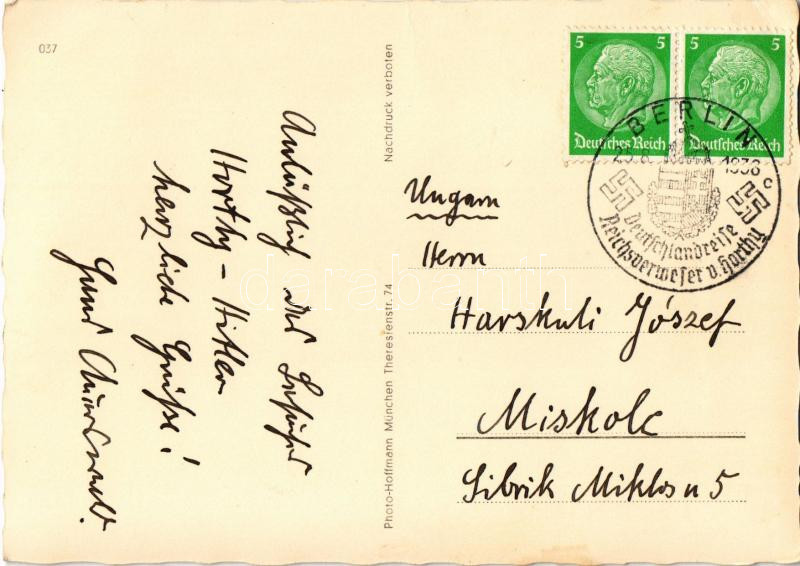 037
Nachdruck verboten
Photo-Hoffmann München Theresienstr. 74
Anläßlich des Besuches
Horthy – Hitler
herzliche Grüße!
5 5
Deutsches Reich
5 5
Deutsches Reich
BERLIN
1938
c
Deutschlandreise
Reichsverweser v. Horthy
Ungarn
Herrn
Harskuti József
Miskolc
Sibrik Miklos u 5
darabanth